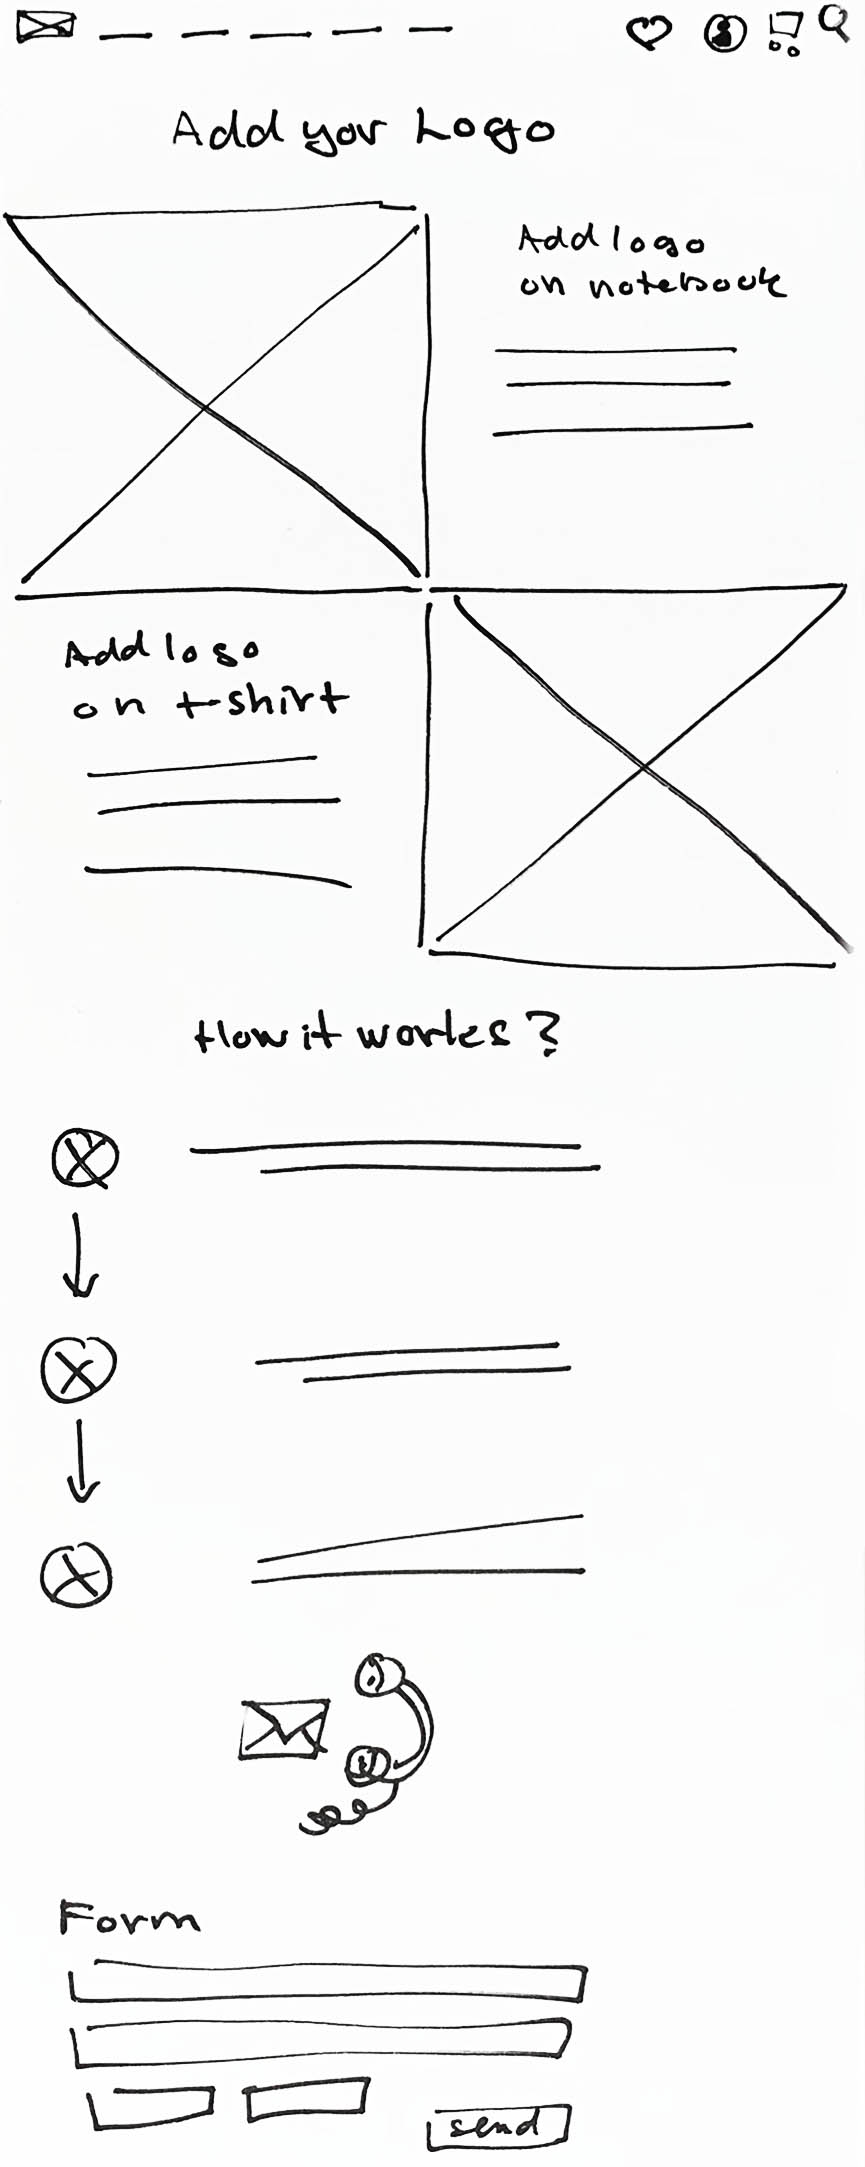 Add your Logo
Add logo
on notebook
Add logo
on t-shirt
How it works?
Form
send